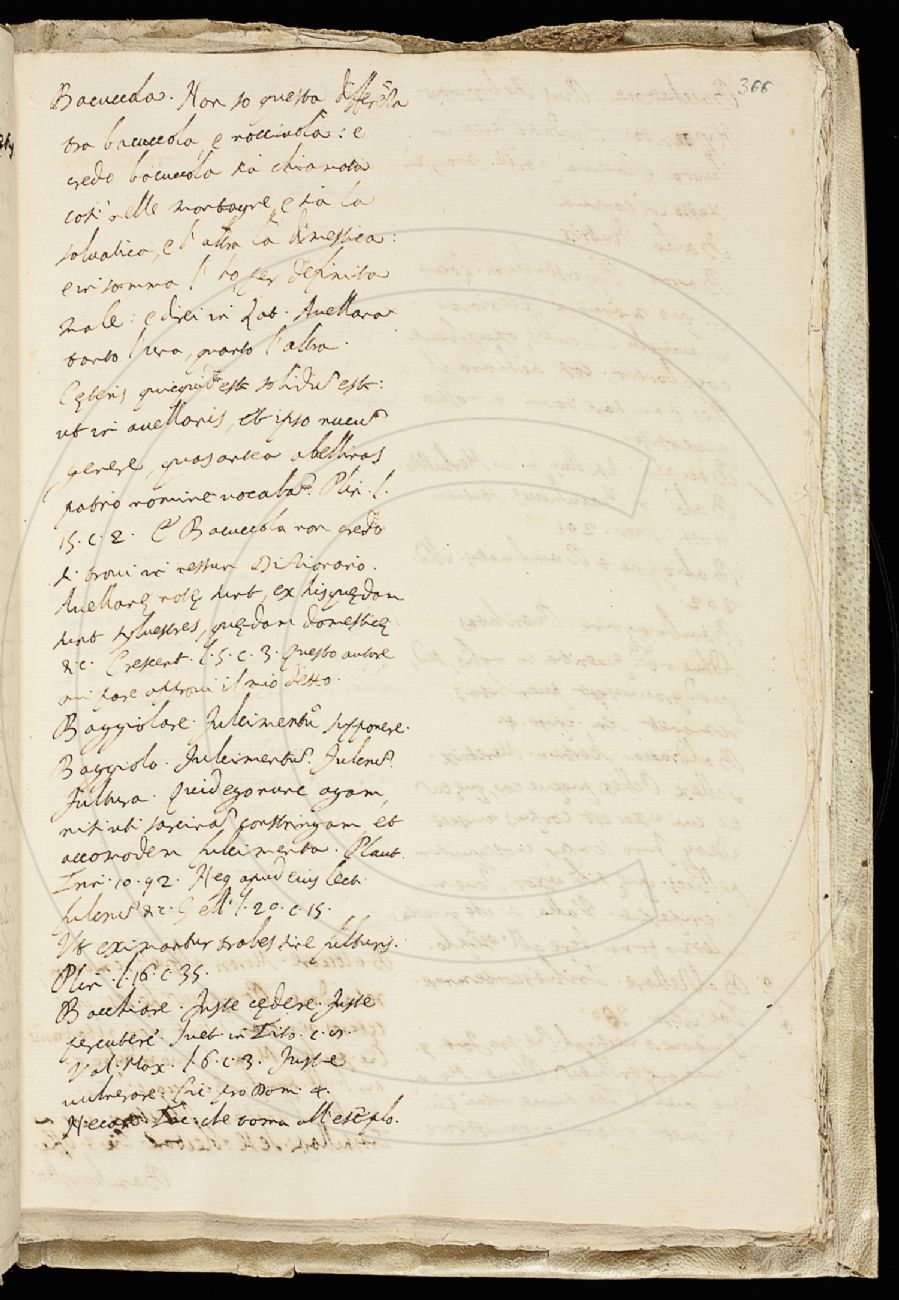 366
Bacuccola. Non so questa differẽza
tra bacuccola, e nocciuola: e
credo bacuccola sia chiamata
così nelle montagne, e sia la
saluatica, e l'altra la dimestica:
e in somma l'ho per definita
male: e direi in Lat. Auellana
tanto l'una, quanto l'altra.
Cęteris quicquid est solidũ est:
ut in auellanis, et ipso nucũ
genere, quas antea abellinas
patrio nomine uocabãt. Plin. l.
15. c. 2. E Bacuccola non credo
si troui in nessun Dittionario.
Auellanę notę sunt, ex his quędam
sunt syluestres, quędam domesticę
&c. Crescent. l. 5. c. 3. Questo autore
mi pare approui il mio detto.
Baggiolare. Fulcimentũ supponere.
Baggiolo. Fulcimentũ. Fulcrũ.
Fultura. Quid ego nunc agam,
nisi uti sarcinã constringam, et
accomodem fulcimenta. Plaut.
10. 92. Neq. apud eius lect.
fulcrũ &c. Gell. l. 20. c. 15.
Vt eximantur trabes sine fulturis.
Plin. l. 16. c. 35.
Bacchiare. Fuste cędere. Fuste
percutere. Suet. in Tito. c. 
Val. Max. l. 6. c. 3. Fuste
uulnerare. Cic. pro Dom. 4.
Necare. Cic. che torna all'esẽplo.